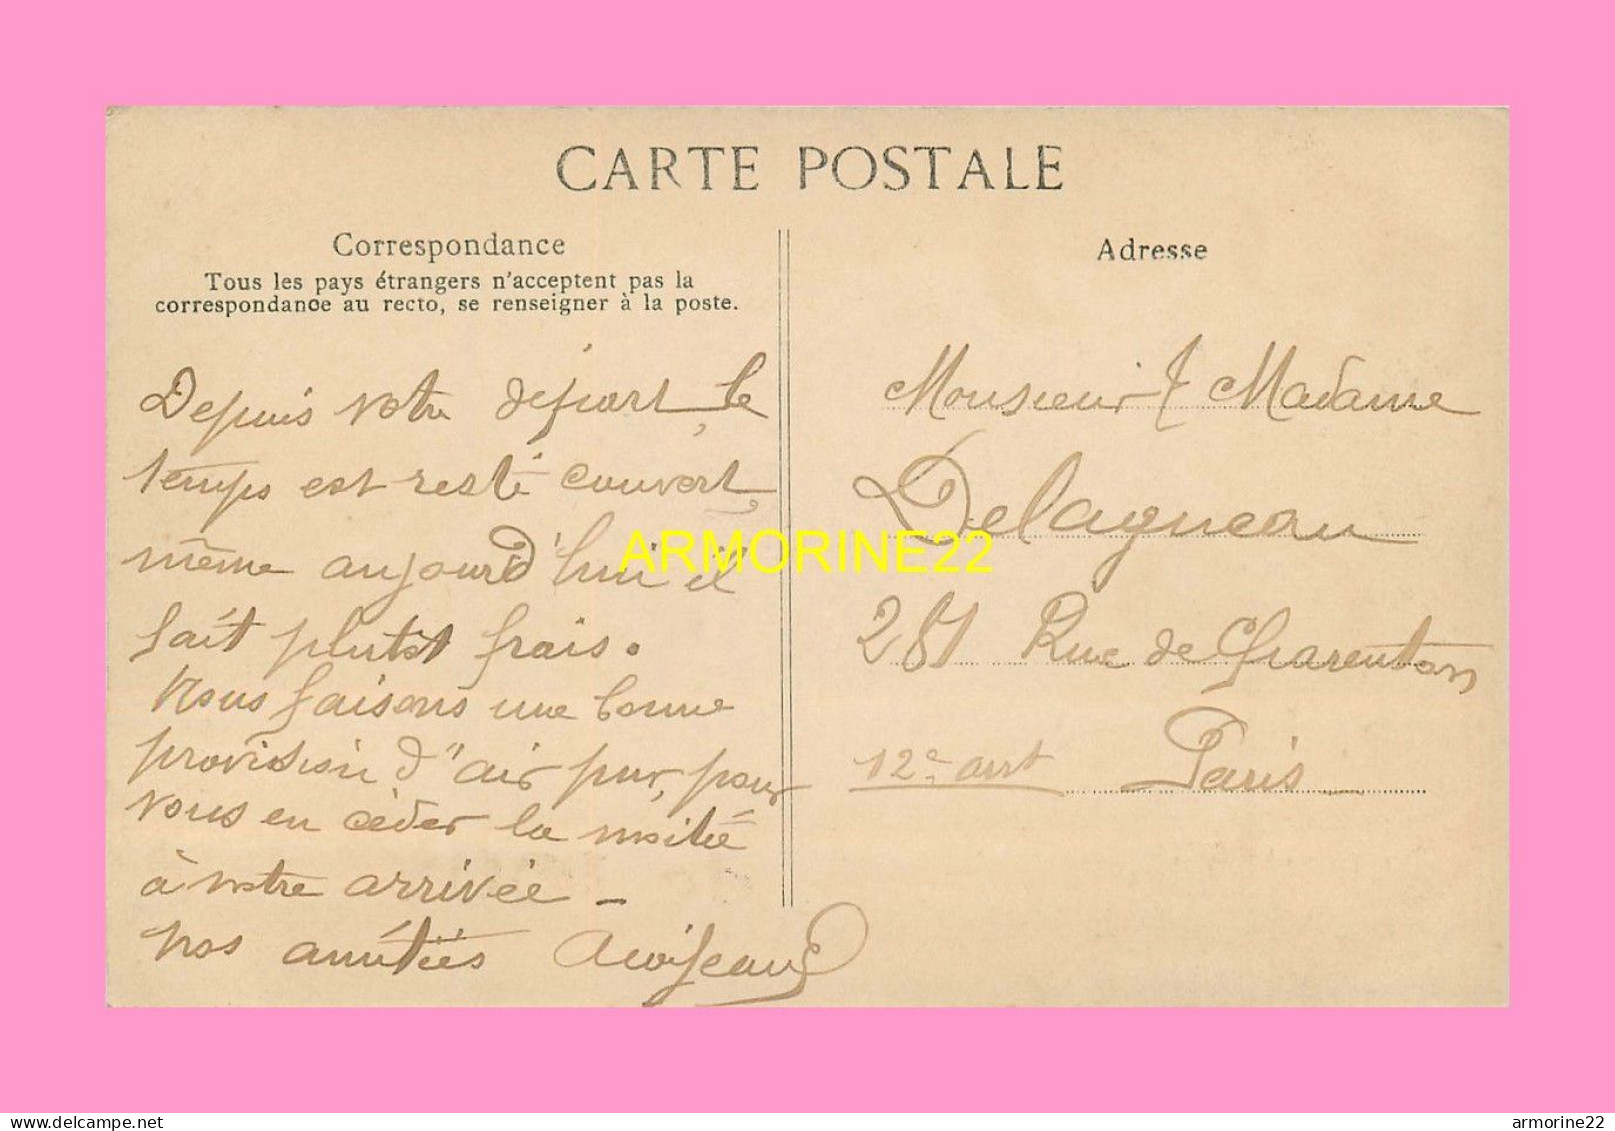 CARTE POSTALE
Correspondance
Tous les pays étrangers n'acceptent pas la
correspondance au recto, se renseigner à la poste.
Depuis votre départ, le
temps est resté couvert,
même aujourd'hui il
fait plutot frais.
Nous faisons une bonne
provision d'air pur, pour
vous en céder la moitié
à notre arrivée -
nos amitiés
Adresse
Monsieur & Madame
Delagneau
251 Rue de Charenton
12e arrt Paris
ARMORINE22
delcampe.net
armorine22